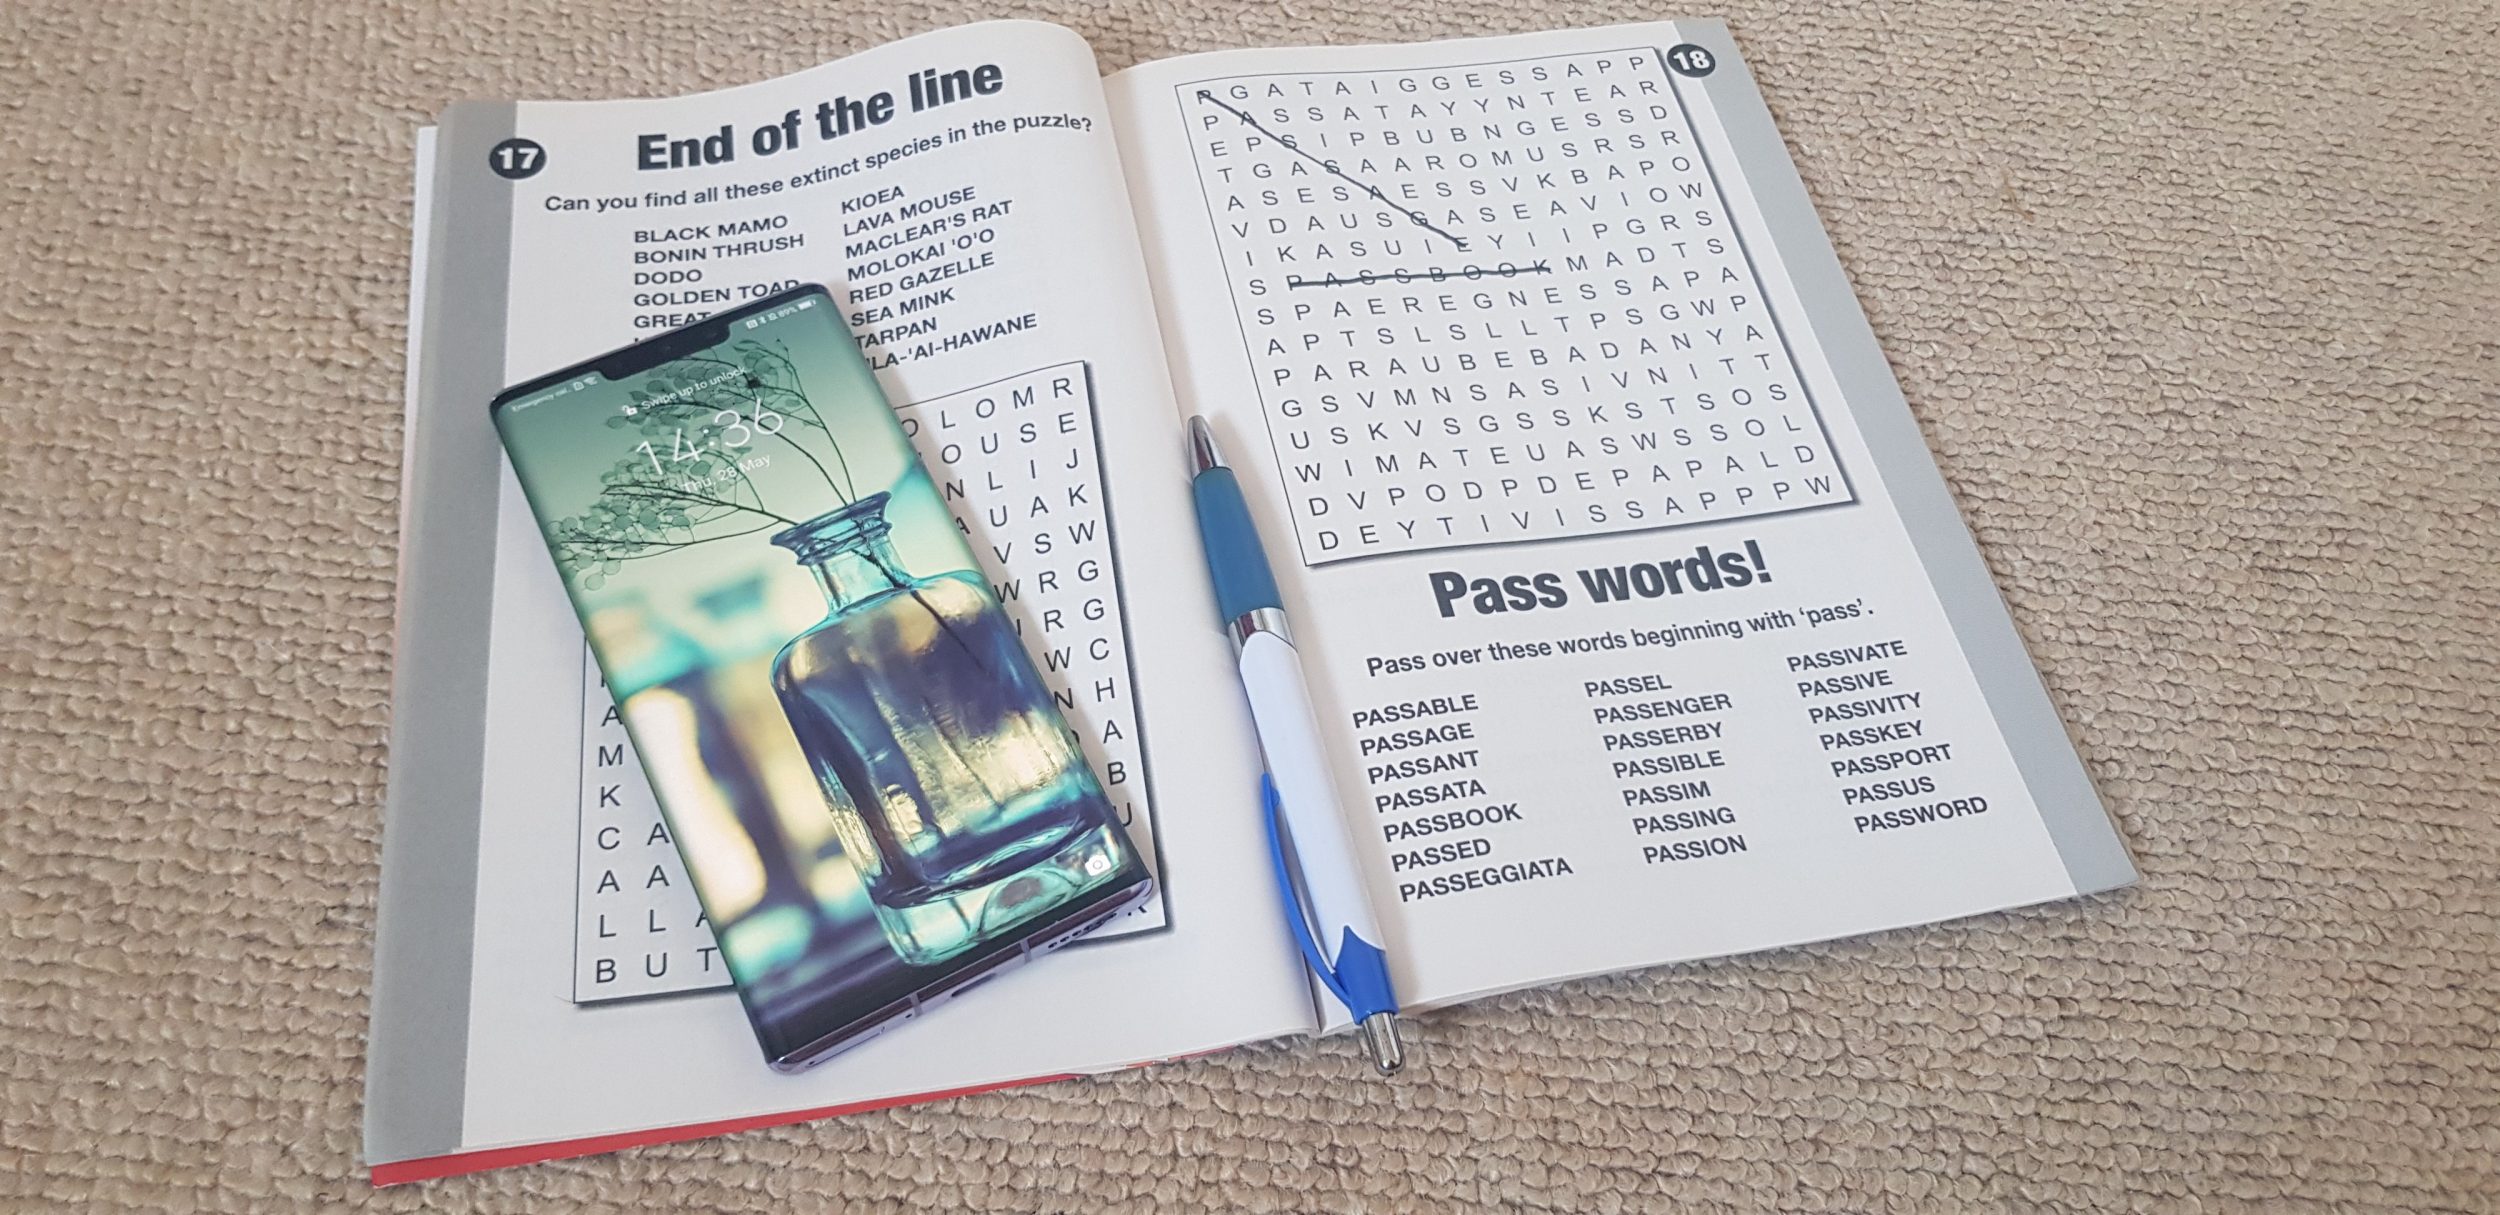 17
End of the line
Can you find all these extinct species in the puzzle?
BLACK MAMO
BONIN THRUSH
DODO
GOLDEN TOAD
GREAT
KIOEA
LAVA MOUSE
MACLEAR'S RAT
MOLOKAI 'O'O
RED GAZELLE
SEA MINK
TARPAN
LA-'AI-HAWANE
O L O M R
O U S E
N L I J
A U A K
V S W
W R G
R G
A W C
M N H
K A
C A B
A A U
L L A
B U T R
Emergency cal.
89%
Swipe up to unlock
14:36
Thu, 28 May
18
P G A T A I G G E S S A P P
P A S S A T A Y Y N T E A R
E P S I P B U B N G E S S D
T G A S A A R O M U S R S R
A S E S A E S S V K B A P O
V D A U S G A S E A V I O W
I K A S U I E Y I I P G R S
S P A S S B O O K M A D T S
S P A E R E G N E S S A P A
A P T S L S L L T P S G W P
P A R A U B E B A D A N Y A
G S V M N S A S I V N I T T
U S K V S G S S K S T S O S
W I M A T E U A S W S S O L
D V P O D P D E P A P A L D
D E Y T I V I S S A P P P W
Pass words!
Pass over these words beginning with 'pass'.
PASSABLE
PASSAGE
PASSANT
PASSATA
PASSBOOK
PASSED
PASSEGGIATA
PASSEL
PASSENGER
PASSERBY
PASSIBLE
PASSIM
PASSING
PASSION
PASSIVATE
PASSIVE
PASSIVITY
PASSKEY
PASSPORT
PASSUS
PASSWORD